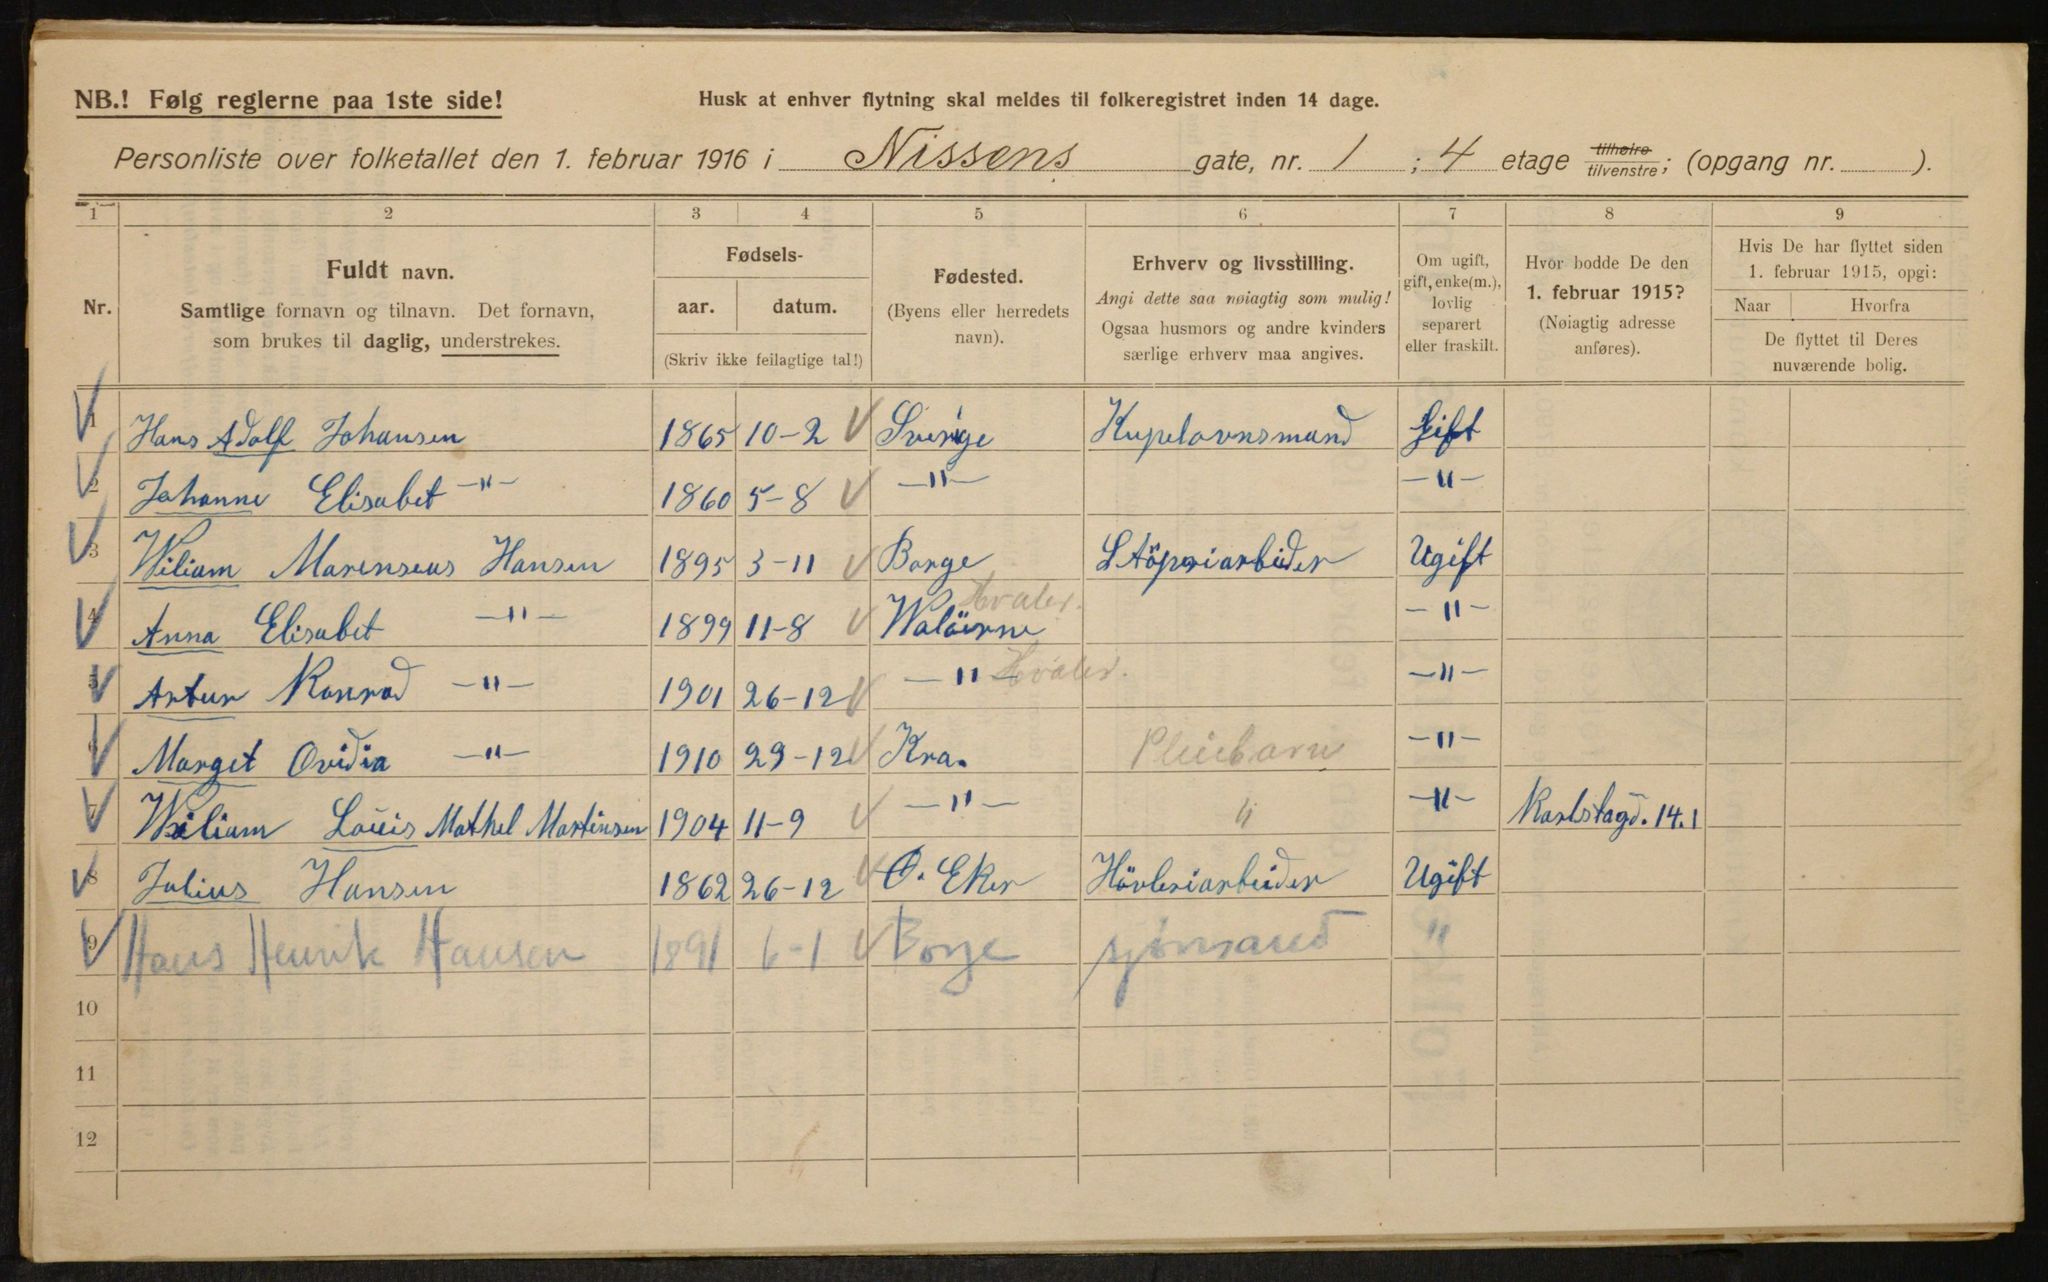 NB.! Følg reglerne paa 1ste side!
Husk at enhver flytning skal meldes til folkeregistret inden 14 dage.
Personliste over folketallet den 1. februar 1916 i Nissens gate, nr. 1 ; 4 etage tilhøire/tilvenstre; (opgang nr. ).
1 2 3 4 5 6 7 8 9
Nr. Fuldt navn. Samtlige fornavn og tilnavn. Det fornavn, som brukes til daglig, understrekes.
Fødsels- aar. datum. (Skriv ikke feilagtige tal!)
Fødested. (Byens eller herredets navn).
Erhverv og livsstilling. Angi dette saa nøiagtig som mulig! Ogsaa husmors og andre kvinders særlige erhverv maa angives.
Om ugift, gift, enke(m.), lovlig separert eller fraskilt.
Hvor bodde De den 1. februar 1915? (Nøiagtig adresse anføres).
Hvis De har flyttet siden 1. februar 1915, opgi: Naar Hvorfra De flyttet til Deres nuværende bolig.
1 Hans Adolf Johansen 1865 10-2 Sverige Kupelovnsmand Gift
2 Johanne Elisabet -"- 1860 5-8 -"- -"-
3 Wiliam Marenseus Hansen 1895 3-11 Borge Stöperiarbeider Ugift
4 Anna Elisabet -"- 1899 11-8 Walöerne Hvaler. -"-
5 Artur Konrad -"- 1901 26-12 -"- Hvaler. -"-
6 Marget Ovidia -"- 1910 29-12 Kra. Pleiebarn -"-
7 Wiliam Louis Mathel Martinsen 1904 11-9 -"- " -"- Karlstagd. 14.1
8 Julius Hansen 1862 26-12 Ö. Eker Hövleriarbeider Ugift
9 Hans Henrik Hansen 1891 6-1 Borge sjømand "
10
11
12